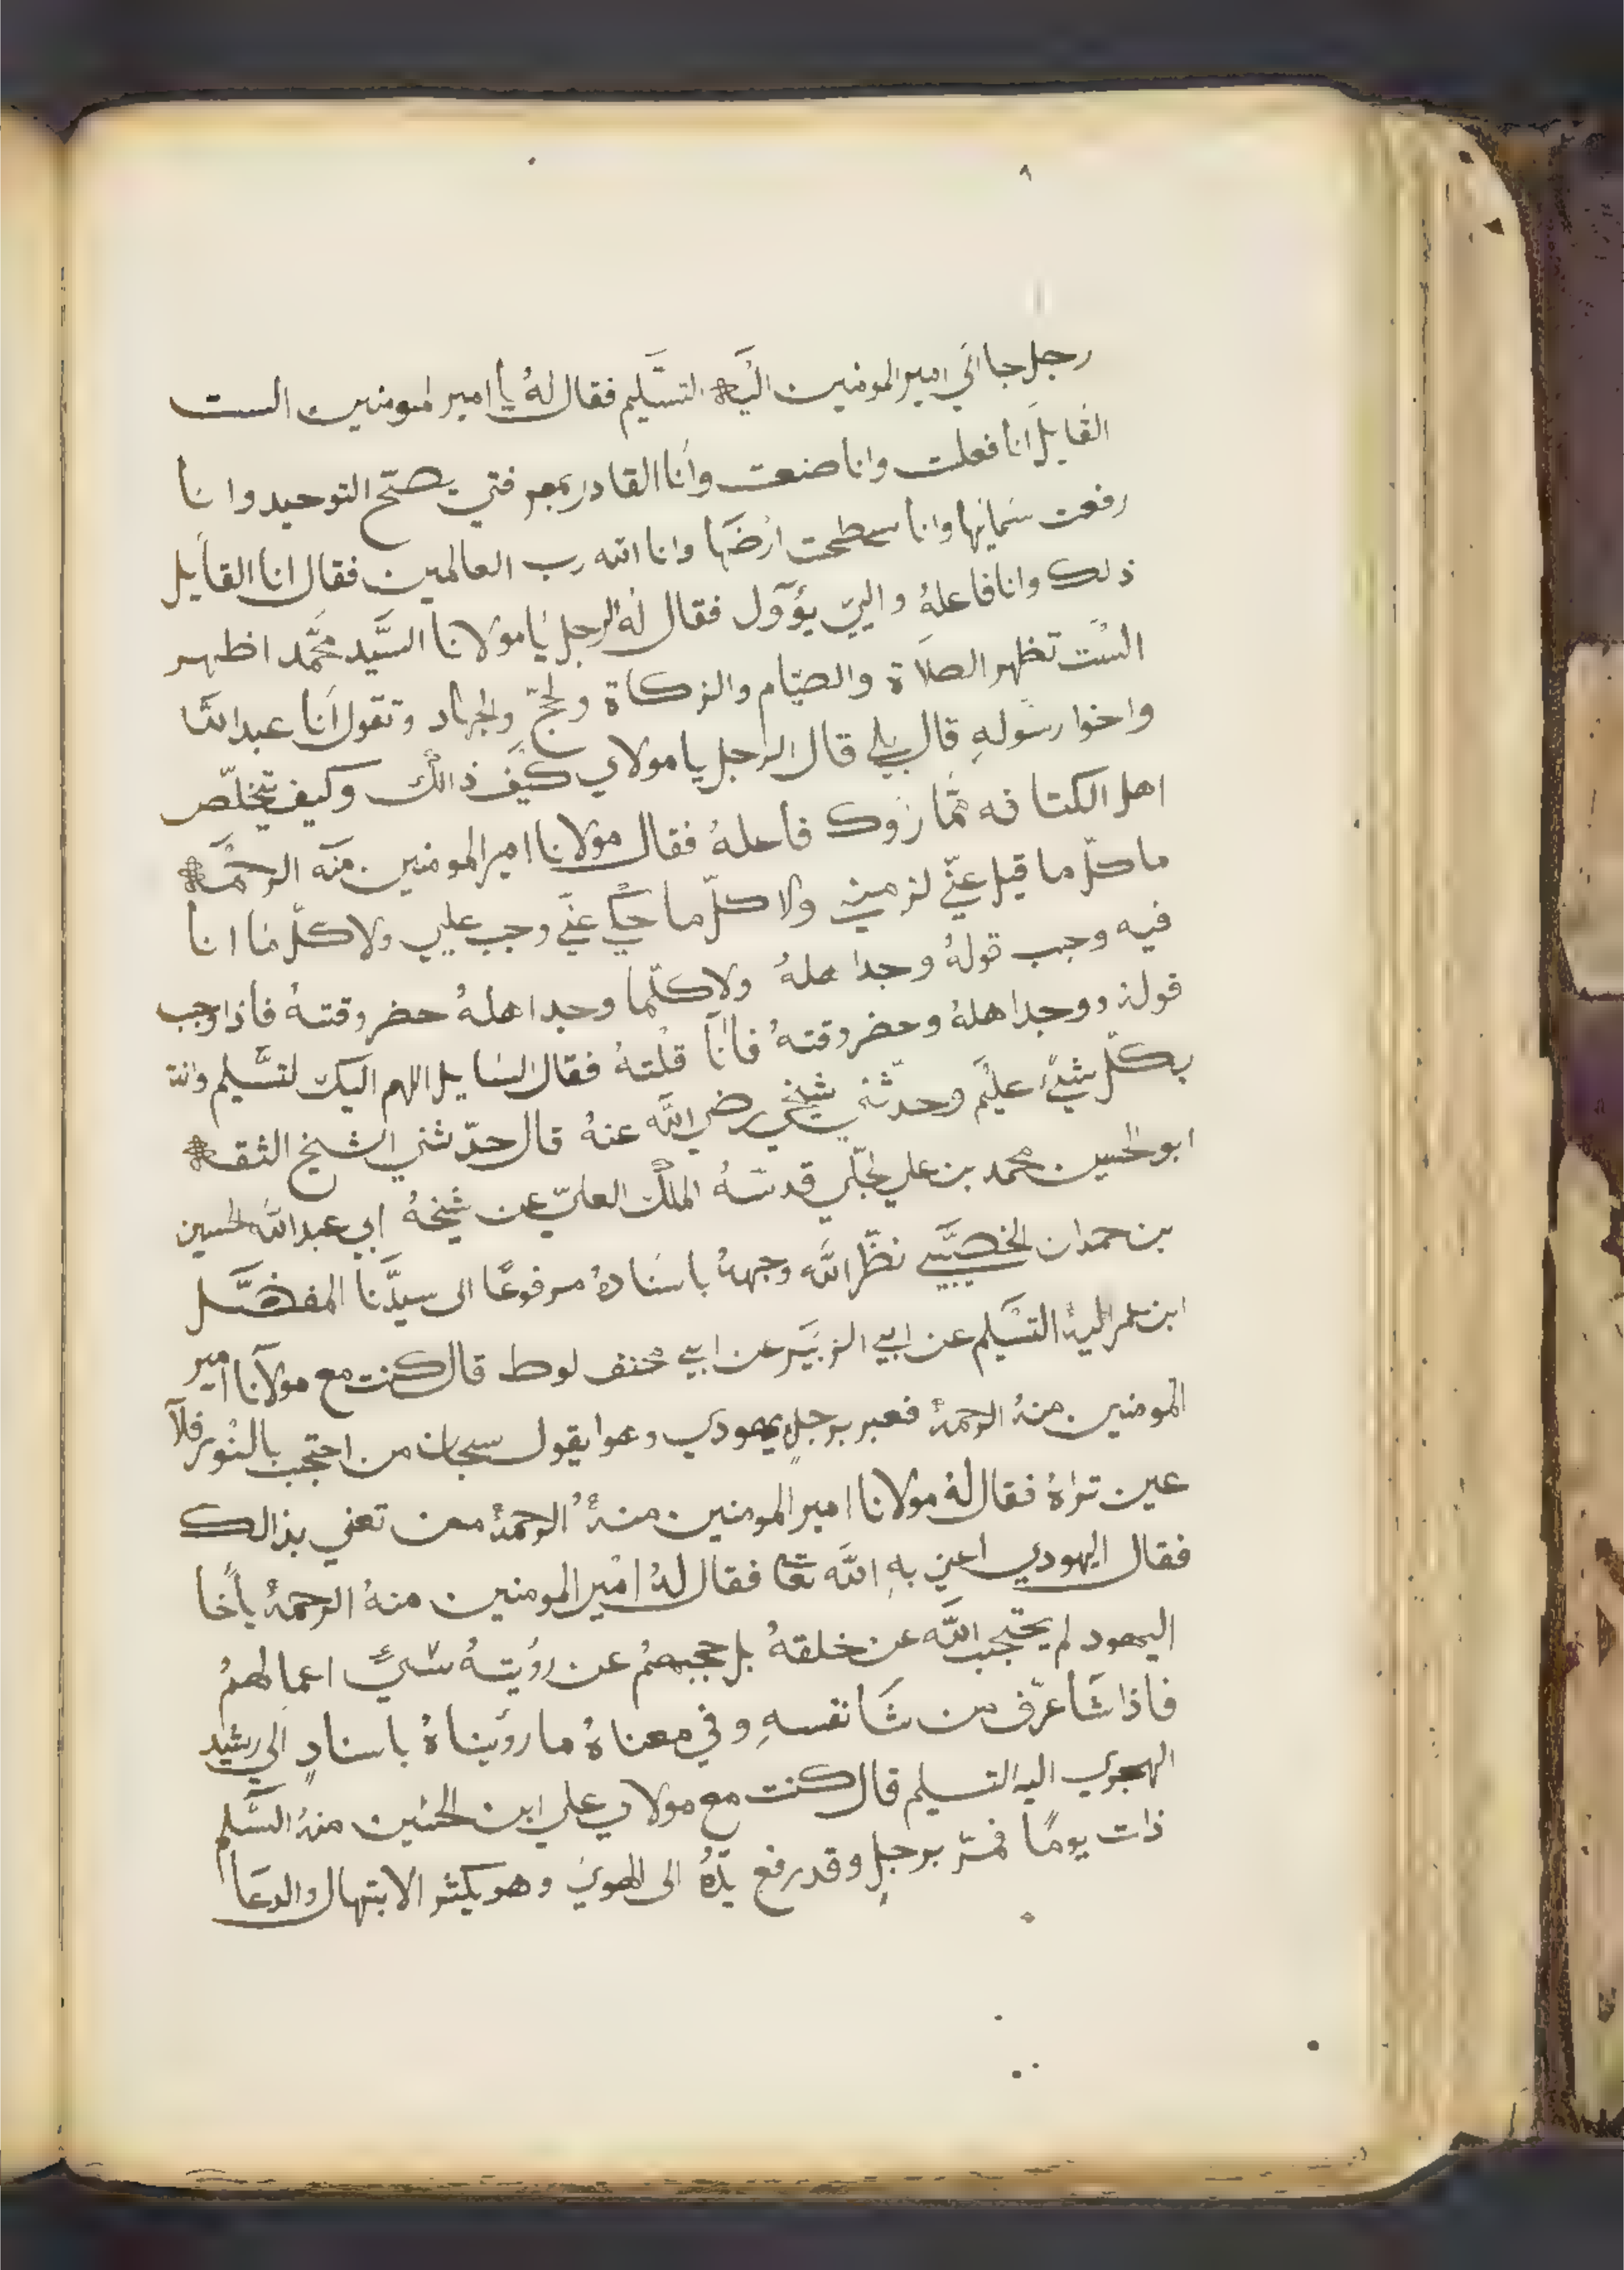 ٨
رجل جا الي امير المومنين اليه التسليم فقال لهُ يا امير لمومنين الست
القايل انا فعلت وانا صنعت وانا القادر بمعرفتي يصحّ التوحيد وانا
رفعت سمايها وانا سطحت ارضها وانا الله رب العالمين فقال انا القايل
ذلك وانا فاعلهُ والييّ يؤول فقال لهُ الرجل يا مولانا السَّيد محَّمد اظهر
الست تظهر الصلاة والصيّام والزكاة ولحجّ والجهاد وتقول انا عبد الله
واخوا رسولهِ قال بلي قال الرجل يا مولاي كيف ذالك وكيف يتخلّص
اهل الكتافه ممّا رَووك فاعلهُ فقال مولانا امير المومنين منه الرحمَه
ما كلّ ما قيل عنّي لزمني ولا كلّ ما حُكي عنّي وجب عليي ولا كلّ ما انا
فيه وجب قولهُ وجد اهلهُ ولا كلّما وجد اهلهُ حضر وقتهُ فاذا وجب
قولهُ ووجد اهلهُ وحضر وقتهُ فانا قلتهُ فقال السايل اللهم اليك لتسَّليم وانت
بكلّ شيءٍ عليَم وحدّثني شيخي رضي الله عنهُ قال حدّثني الشيخ الثقه
ابو الحسين محمد بن علي لجلّي قدسهُ الملك العليّ عن شيخهُ ابي عبد الله لحسين
بن حمدان الخصيّبيي نظّر الله وجههُ باسنادهُ مرفوعًا الى سيدَّنا المفضَّل
ابن عمر اليهُ التسَليم عن ابيي الزبيَر عن ابيي مخنف لوط قال كنت مع مولانا امير
المومنين منهُ الرحمهُ فعبر برجلٍ يهودي وهوا يقول سبحان من احتجب بالنور فلا
عين تراهُ فقال لهُ مولانا امير المومنين منهُ الرحمهُ معن تعني بذالك
فقال اليهودي اعني بهِ الله تعا فقال لهُ امير المومنين منهُ الرحمهُ ياخا
اليهود لم يحتجب الله عن خلقهُ بل حجبهمُ عن رؤيتهُ سَيّ اعمالهمُ
فاذا شا عرّف من شا نفسهِ وفي معناهُ ما رويناهُ باسنادٍ الي رشيد
الهجري اليه التسليم قال كنت مع مولاي علي ابن الحسَين منهُ السَّلم
ذات يومًا فمرّ برجلٍ وقد رفع يدَهُ الى الهوي وهو يكثر الابتهال والدعا